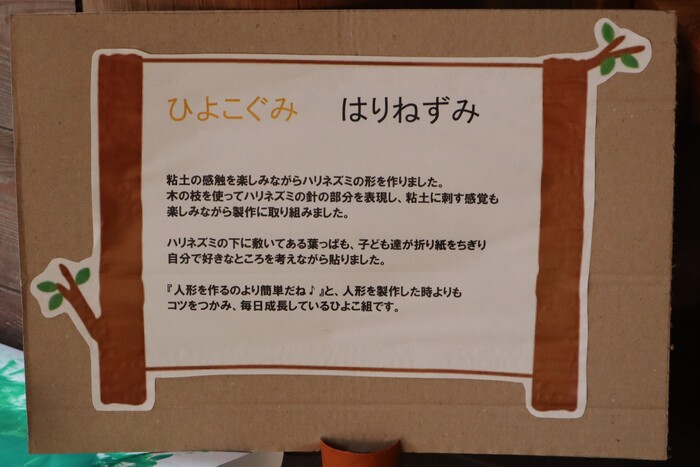 ひよこぐみ　はりねずみ
粘土の感触を楽しみながらハリネズミの形を作りました。
木の枝を使ってハリネズミの針の部分を表現し、粘土に刺す感覚も
楽しみながら製作に取り組みました。
ハリネズミの下に敷いてある葉っぱも、子ども達が折り紙をちぎり
自分で好きなところを考えながら貼りました。
『人形を作るのより簡単だね♪』と、人形を製作した時よりも
コツをつかみ、毎日成長しているひよこ組です。